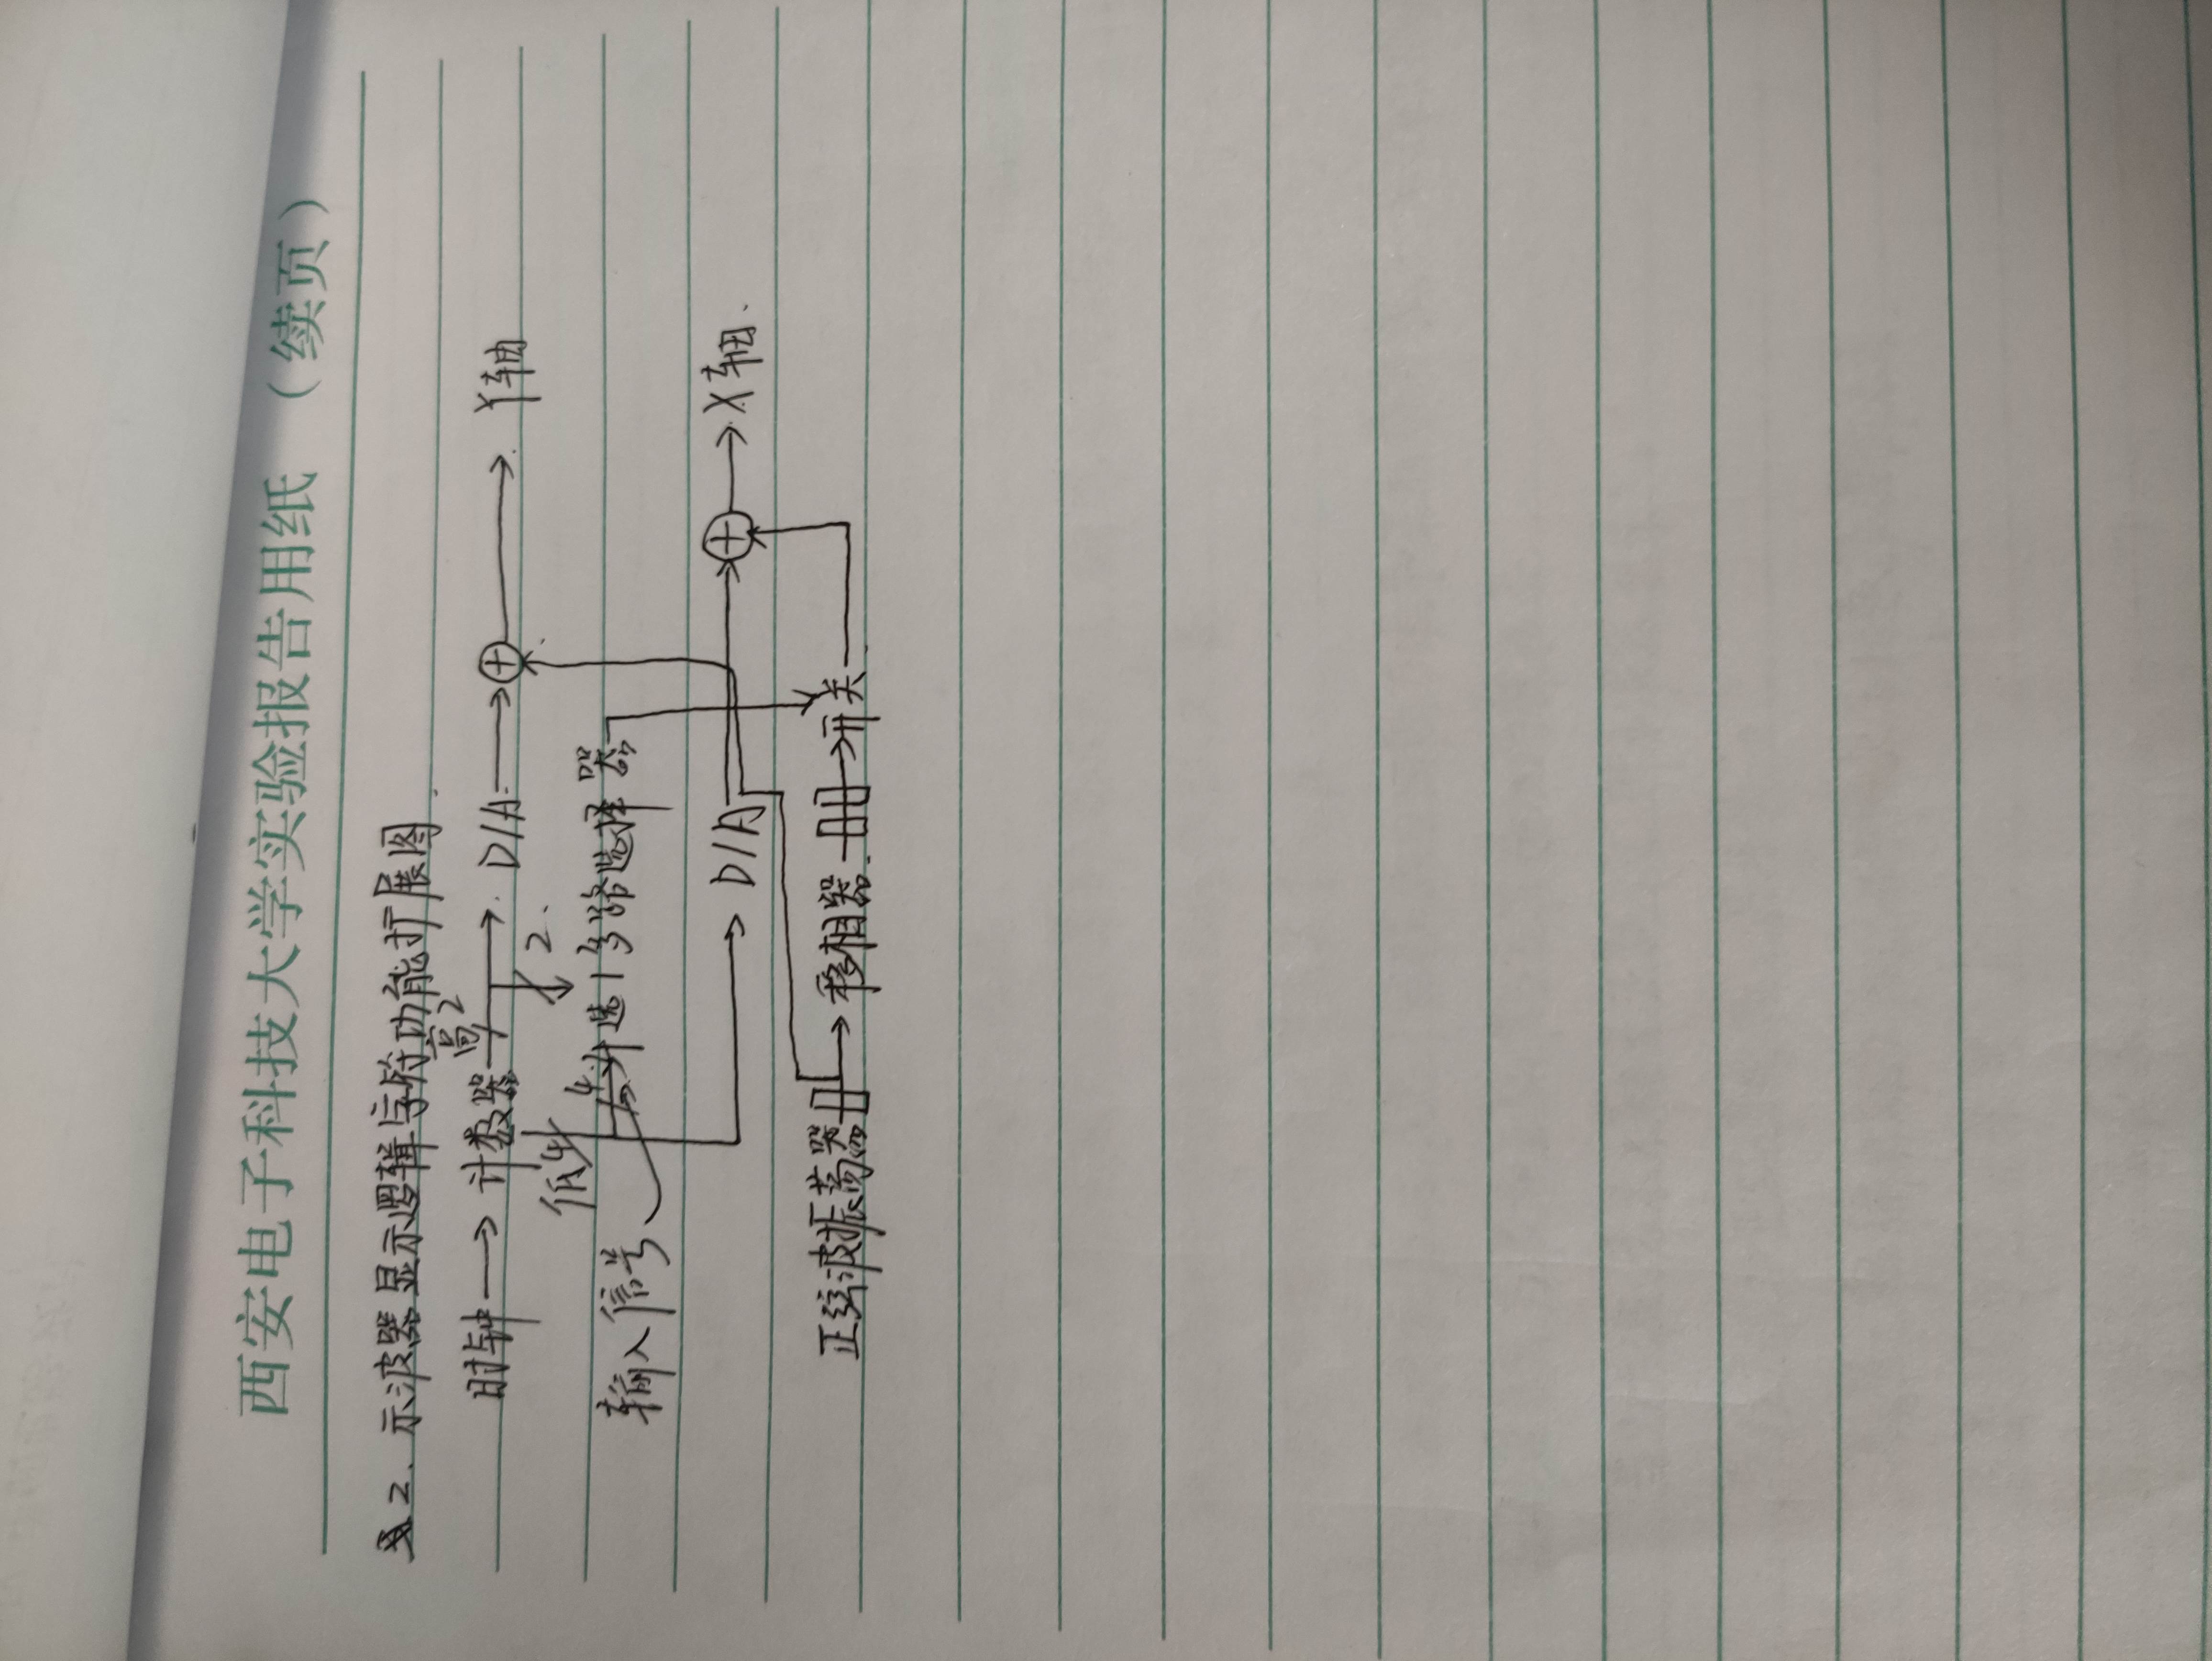 西安电子科技大学实验报告用纸 （续页）
2. 示波器显示逻辑字符功能扩展图.
高2
时钟 计数器 D/A Y轴
低4 2.
4
输入信号 选1多路选择器
D/A X轴.
正弦波振荡器 移相器 开关